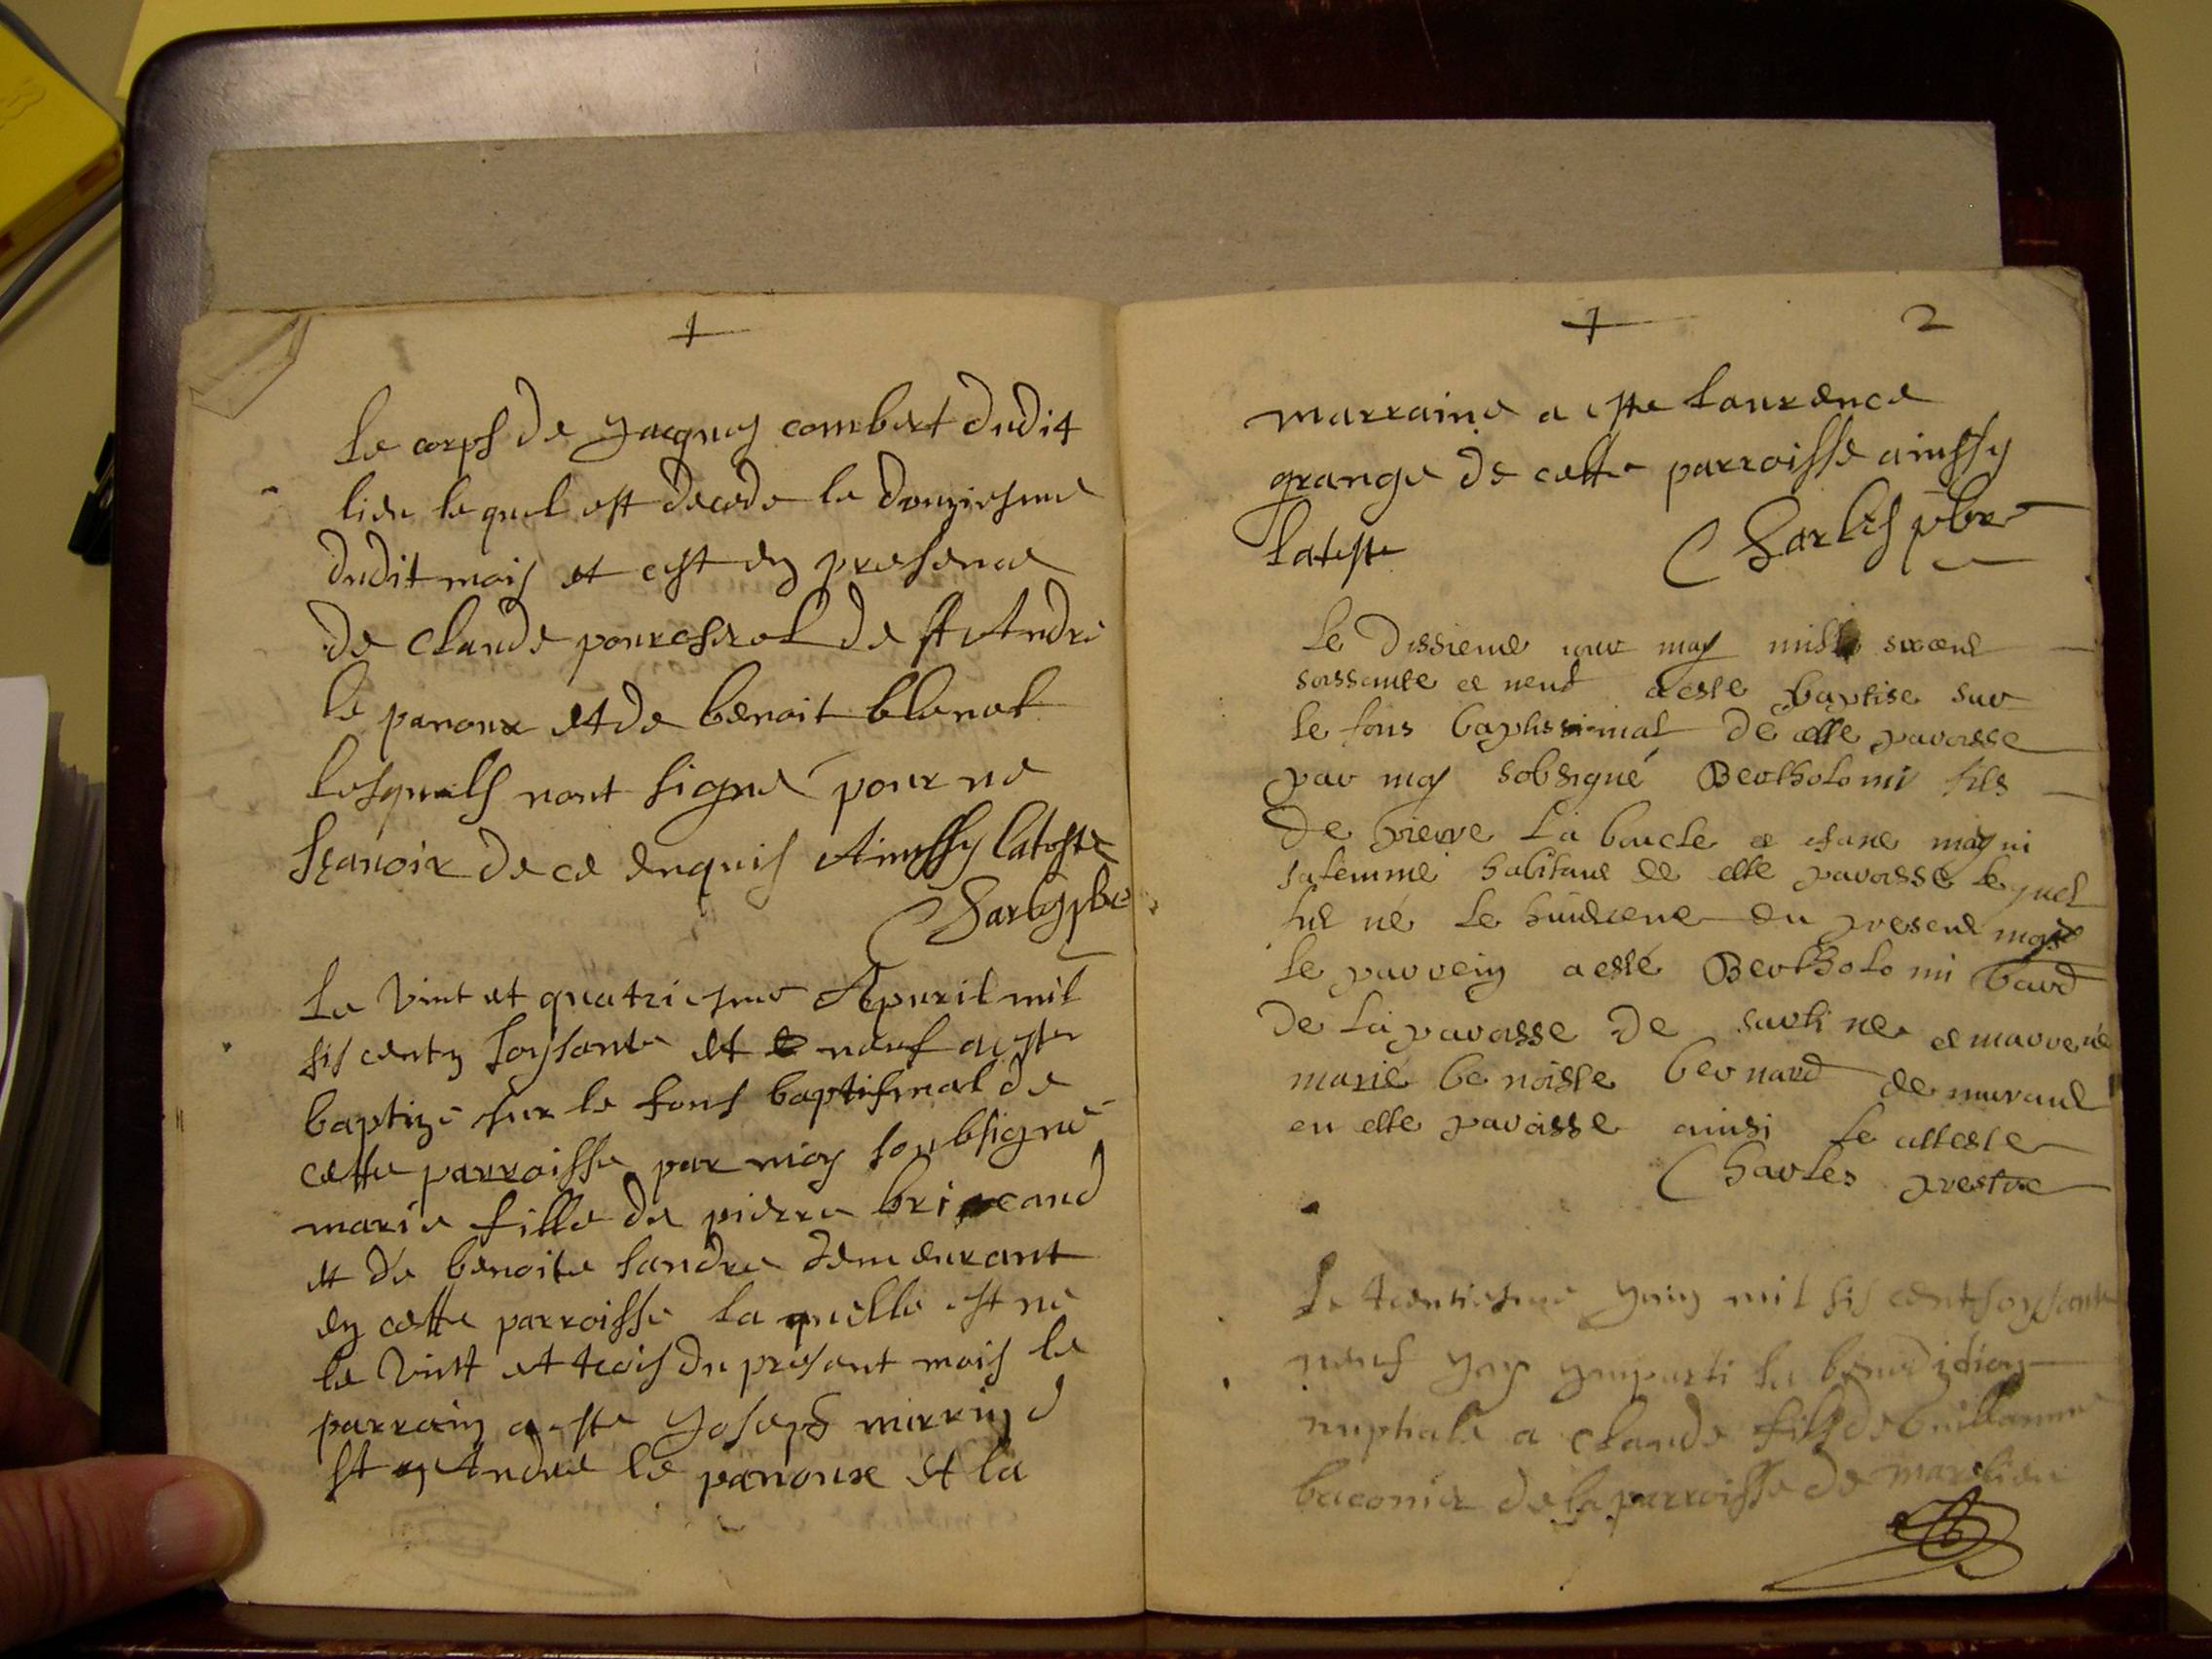 le corps de Jacques combert dudit
lieu lequel est decede le douziesme
dudit mois et cest en presence
de Claude pourcherol de st Andre
le panoux et de benoit blanot
lesquels nont signe pour ne
sçavoir de ce enquis Ainssy lateste
Charles pbre
Le vint et quatriesme Apvril mil
sis centz soysante et neuf a este
baptizé sur le fons baptismal de
cette parroisse par moy soubsigné
marie fille de pierre
et de benoite sandre demeurant
en cette parroisse la quelle est né
le vint et trois du presant mois le
parrain a este Joseph
st Andre le panoux et la
2
marraine a este laurence
grange de cette parroisse ainssy
lateste Charles pbre
Le dissieme iour may mille sixcent
soissante et neuf a este baptise sur
le fons baptissimal de cette paroisse
par moy sobsigné Bertholomi fils
De pierre la boucle et
sa femme habitant de cette paroisse le quel
fut né le huitieme du present mois
le parrein a esté Bertholomi bard
De la paroisse De et marrene
marie benoiste bernard de murant
en cette paroisse ainsi le atteste
Charles prestre
Le trentiesme Juin mil sis cent soysante
neuf Jay Jmparti la benediction
nuptiale a Claude fils de Guillaume
baconier de la parroisse de